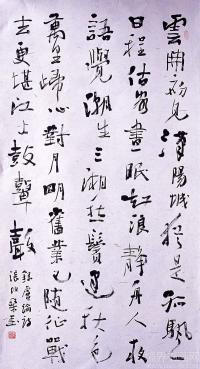 雲開遠見漢陽城猶是孤颿一
日程估客晝眠知浪靜舟人夜
語覺潮生三湘愁鬢逢秋色
萬里歸心對月明舊業已隨征戰
盡更堪江上鼓鼙聲
錄盧綸詩